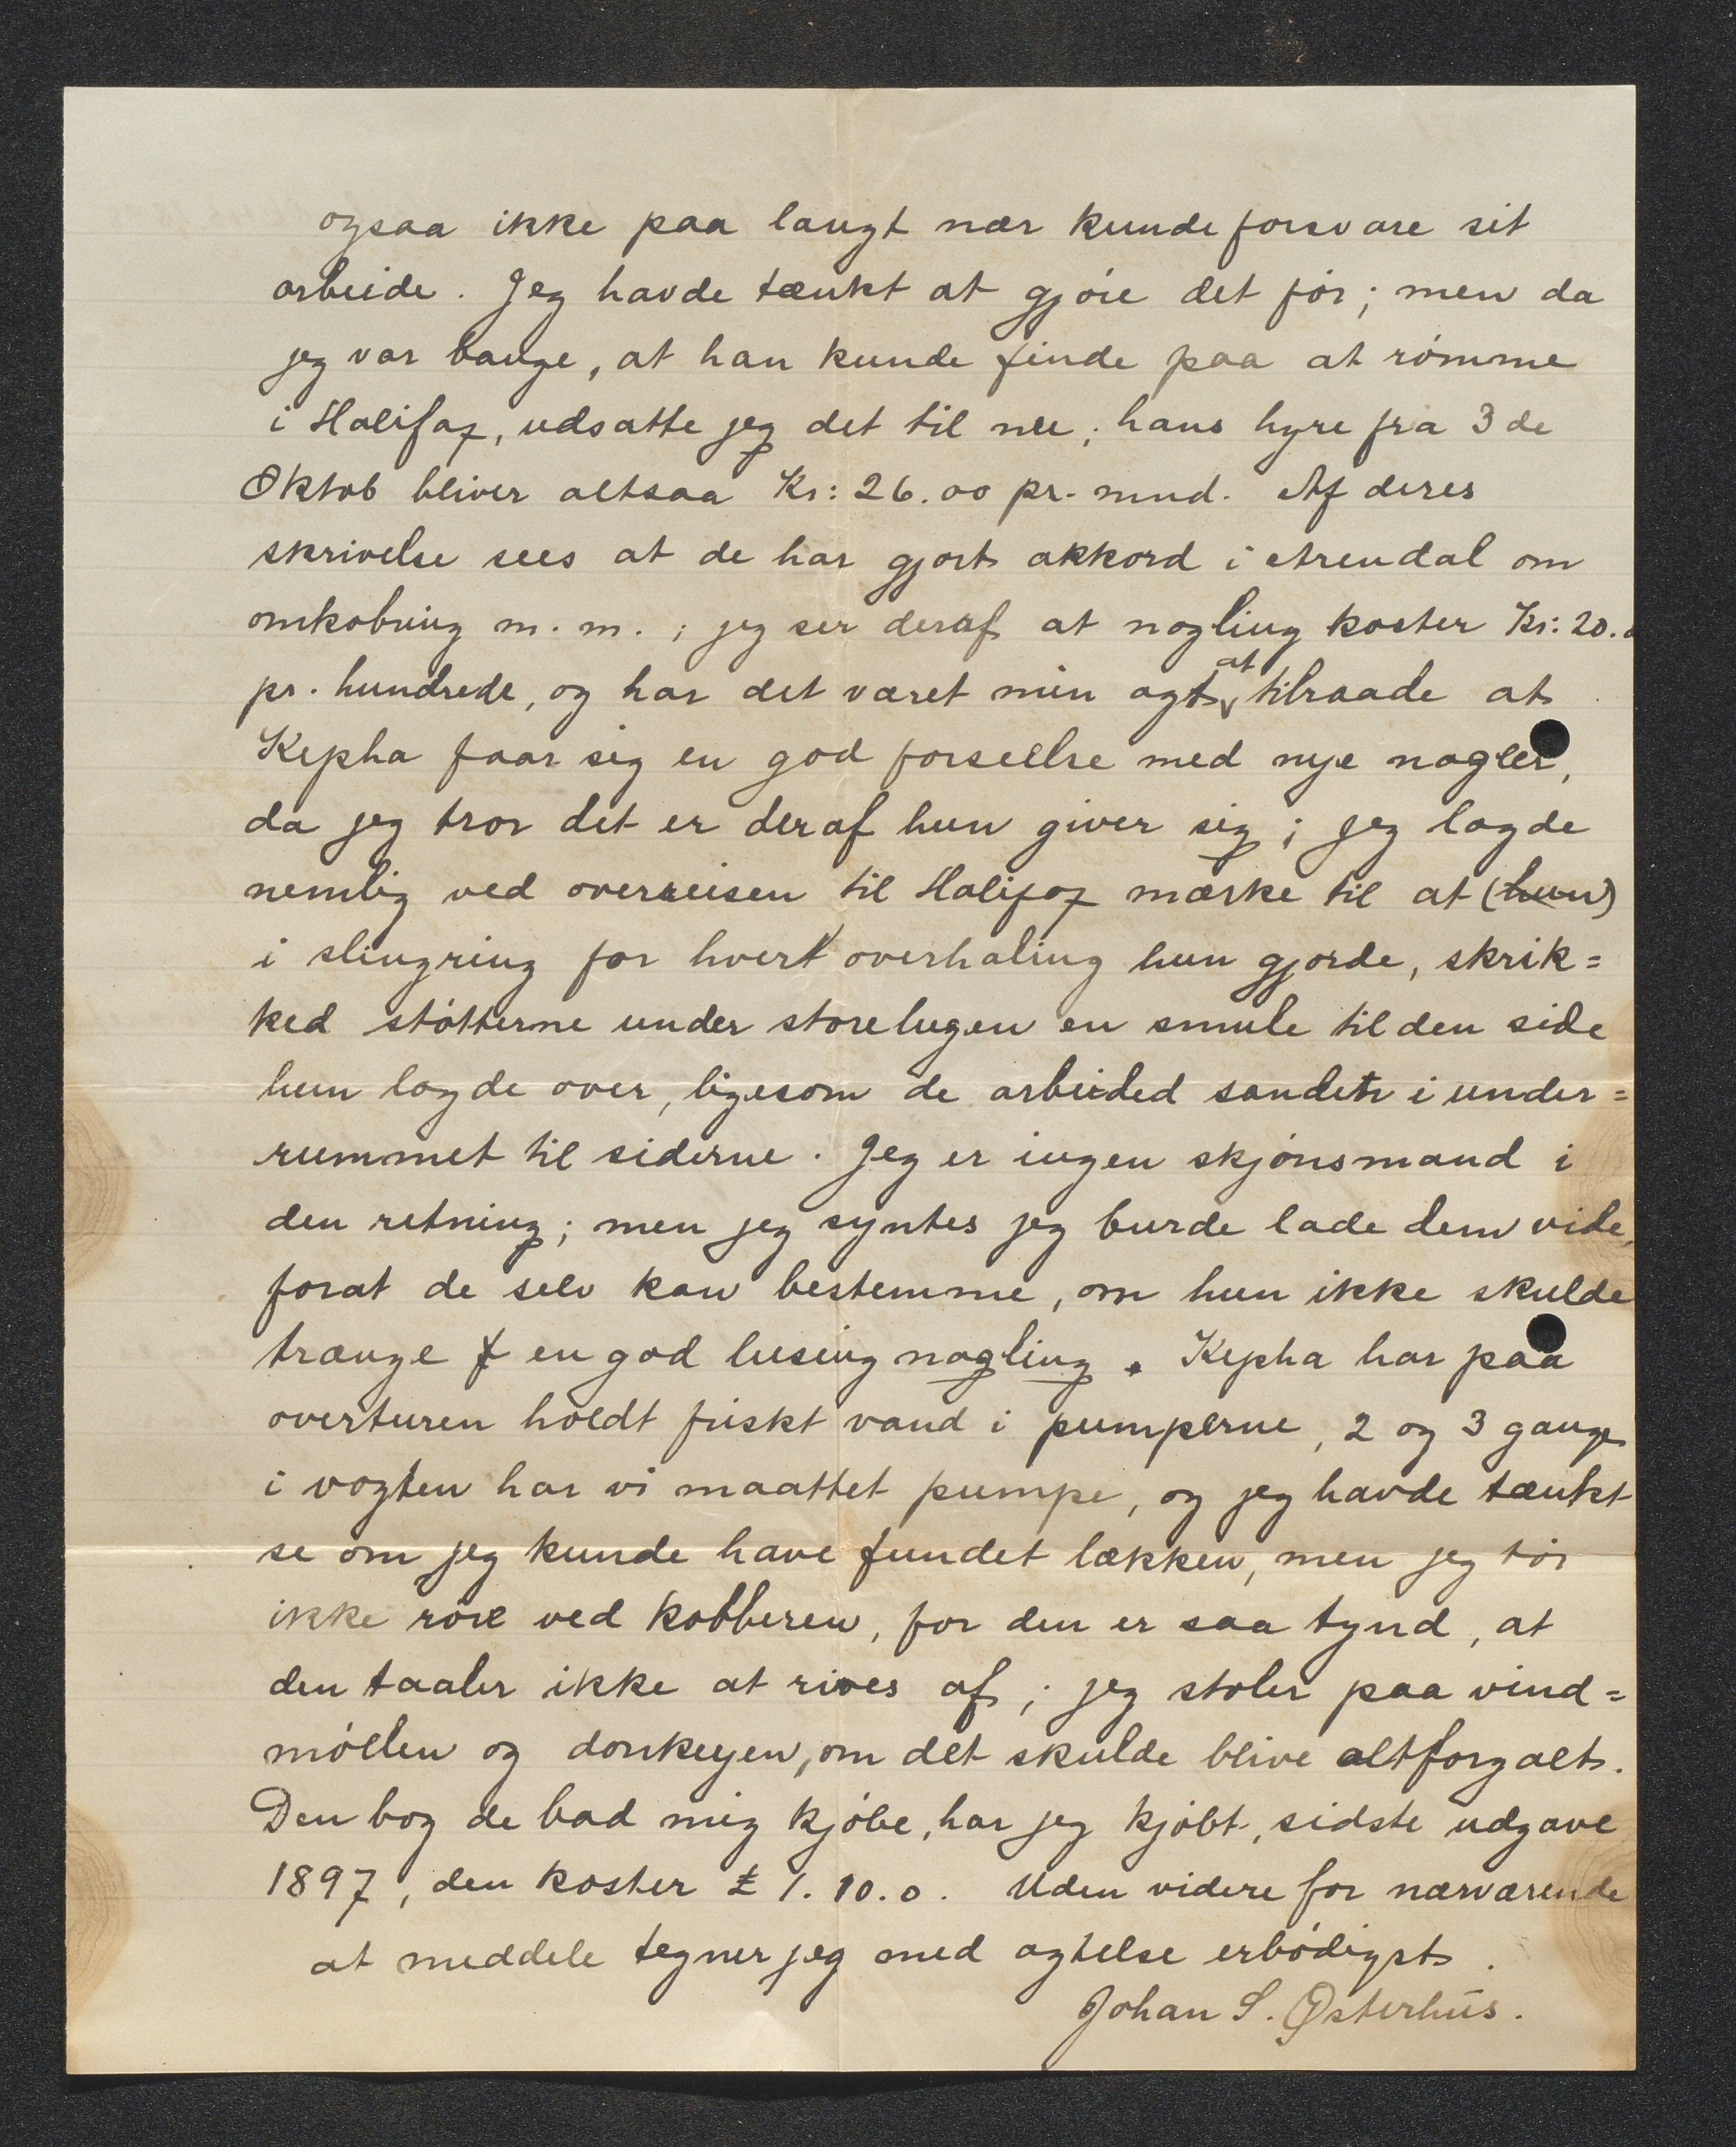 ogsaa ikke paa langt nær kunde forsvare sit
arbeide. Jeg havde tænkt at gjøre det før; men da
jeg var bange, at han kunde finde paa at rømme
i Halifax, udsatte jeg det til nu; hans hyre fra 3 de
Oktob bliver altsaa Kr: 26.00 pr. mnd. Af deres
skrivelse sees at de har gjort akkord i Arendal om
omkobring m. m.; jeg ser deraf at nagling koster Kr: 20.
pr. hundrede, og har det været min agt at tilraade at
Kepha faar sig en god forseelse med nye nagler,
da jeg tror det er deraf hun giver sig; jeg lagde
nemlig ved overreisen til Halifax mærke til at (hun)
i slingring for hvert overhaling hun gjorde, skrik=
ked støtterne under storelugen en smule til den side
hun lagde over, ligesom de arbeided sandet i under=
rummet til siderne. Jeg er ingen skjønsmand i
den retning; men jeg syntes jeg burde lade dem vide,
forat de selv kan bestemme, om hun ikke skulde
trænge en god lusing nagling. Kepha har paa
overturen holdt friskt vand i pumperne, 2 og 3 gange
i vagten har vi maattet pumpe, og jeg havde tænkt
se om jeg kunde have fundet lækken, men jeg tør
ikke røre ved kobberen, for den er saa tynd, at
den taaler ikke at rives af; jeg stoler paa vind=
møllen og donkeyen, om det skulde blive altforgalt.
Den bog de bad mig kjøbe, har jeg kjøbt, sidste udgave
1897, den koster £ 1.10.0. Uden videre for nærværende
at meddele tegner jeg med agtelse erbødigst.
Johan S. Østerhus.